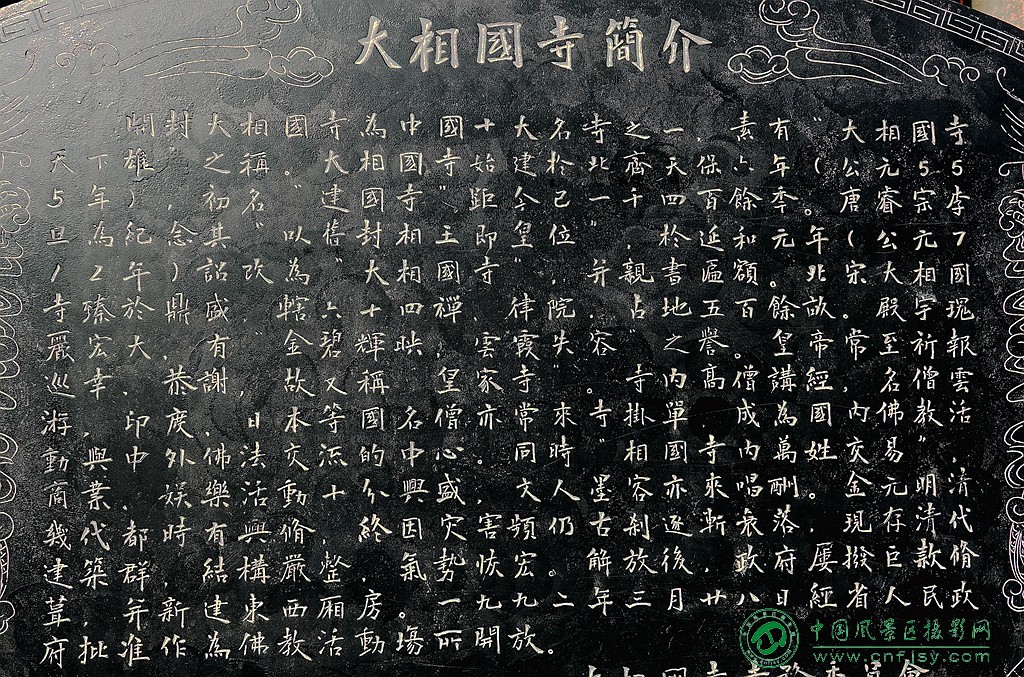 大相國寺簡介
開封大相國寺為中國十大名寺之一,素有“大相國寺
天下雄”之稱。大相國寺始建於北齊天保六年(公元55
5年),初名“建國寺”,距今已一千四百餘年。唐睿宗李
旦為紀念其“以舊封相王”即皇位,於延和元年(公元7
12)年詔改為“大相國寺”,并親書匾額。北宋大相國
寺臻於鼎盛,轄六十四禪律院,占地五百餘畝。殿宇瑰
嚴宏大,有“金碧輝映,雲霞失容”之譽。皇帝常至祈報
巡幸,恭謝,故又稱“皇家寺”。寺內高僧講經,名僧雲
游,印度、日本等國名僧亦常來寺掛單,成為國內佛教活
動興中外佛法交流的中心。同時“相國寺內萬姓交易”,
商業,娛樂活動十分興盛,文人墨容亦來唱酬。元明清
幾代都時有興脩,終因災害頻仍,古刹逐漸衰落,現存清代
建築群,結構嚴整,氣勢恢宏。解放後,政府屢撥巨款脩
葺,并新建東西廂房。一九九二年三月廿八日經省人民政
府批准作為佛教活動場所開放。
大相國寺寺務委員會
中国风景区摄影网
www.cnfjsy.com